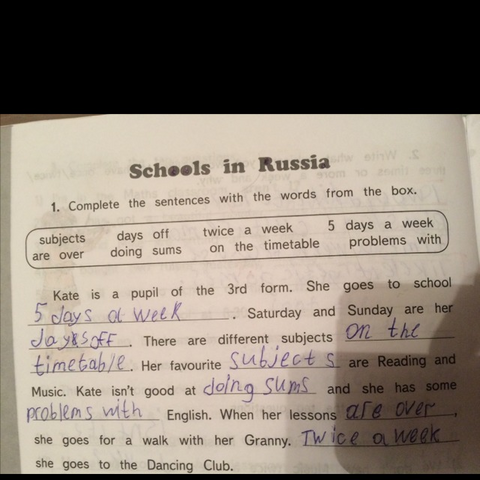 Schools in Russia
1. Complete the sentences with the words from the box.
subjects days off twice a week 5 days a week
are over doing sums on the timetable problems with
Kate is a pupil of the 3rd form. She goes to school
5 days a week. Saturday and Sunday are her
days off. There are different subjects on the
timetable. Her favourite subjects are Reading and
Music. Kate isn't good at doing sums and she has some
problems with English. When her lessons are over,
she goes for a walk with her Granny. Twice a week
she goes to the Dancing Club.